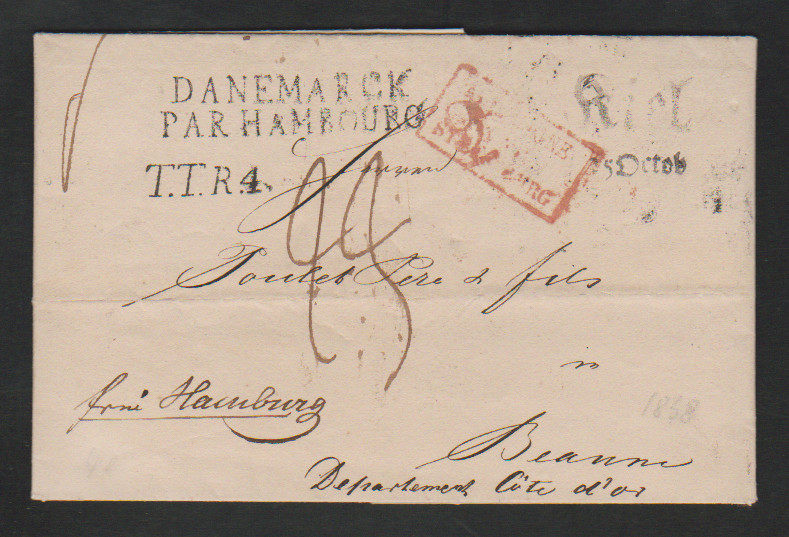 DANEMARCK
PAR HAMBOURG
T.T.R.4.
Kiel
25 Octob
STRASBOURG
Herren
Poulet Pere & fils
in
franc Hamburg
1838
Beaune
Departement Côte d'or